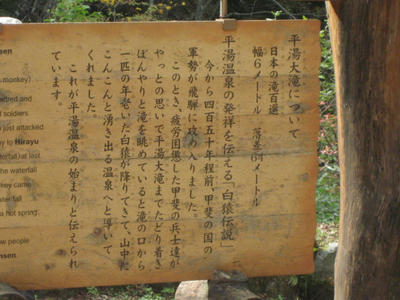 平湯大滝について
日本の滝百選
幅6メートル 落差64メートル
平湯温泉の発祥を伝える「白猿伝説」
今から四百五十年程前、甲斐の国の
軍勢が飛騨に攻め入りました。
このとき、疲労困憊した甲斐の兵士達が
やっとの思いで平湯大滝までたどり着き
ぼんやりと滝を眺めていると滝の口から
一匹の年老いた白猿が降りてきて、山中に
こんこんと湧き出る温泉へと導いて
くれました。
これが平湯温泉の始まりと伝えられ
ています。
nsen
monkey)
soldiers
just attacked
y to Hirayu
terfall) at last
he waterfall
key came
terfall
a hot spring
w people
nsen.